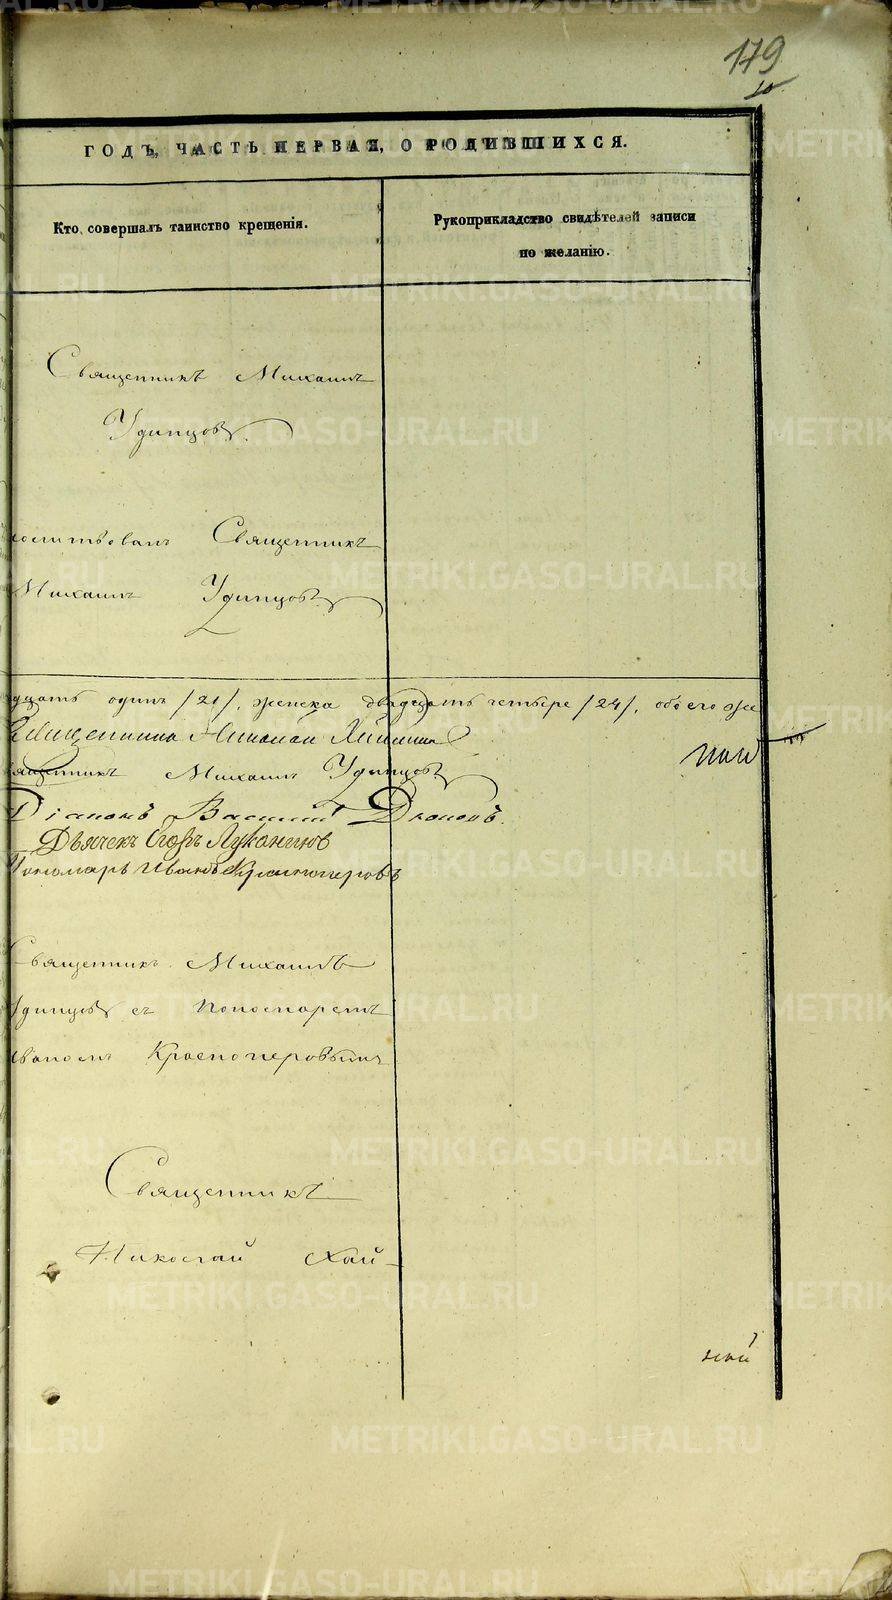 179
10
ГОДЪ, ЧАСТЬ ПЕРВАЯ, О РОДИВШИХСЯ.
Кто совершалъ таинство крещенія.
Рукоприкладство свидѣтелей записи
по желанію.
Священникъ Михаилъ
Удинцовъ.
Священникъ
Михаилъ Удинцовъ
дцать одинъ /21/, женска двадцать четыре /24/, обоего же
Священникъ Михаилъ Удинцовъ
Діаконъ Василій
Дьячекъ Егоръ Луканинъ
Пономарь Иванъ Красноперовъ
Священникъ Михаилъ
Удинцовъ съ пономаремъ
Иваномъ Красноперовымъ
Священникъ
Николай Хай-
METRIKI.GASO-URAL.RU